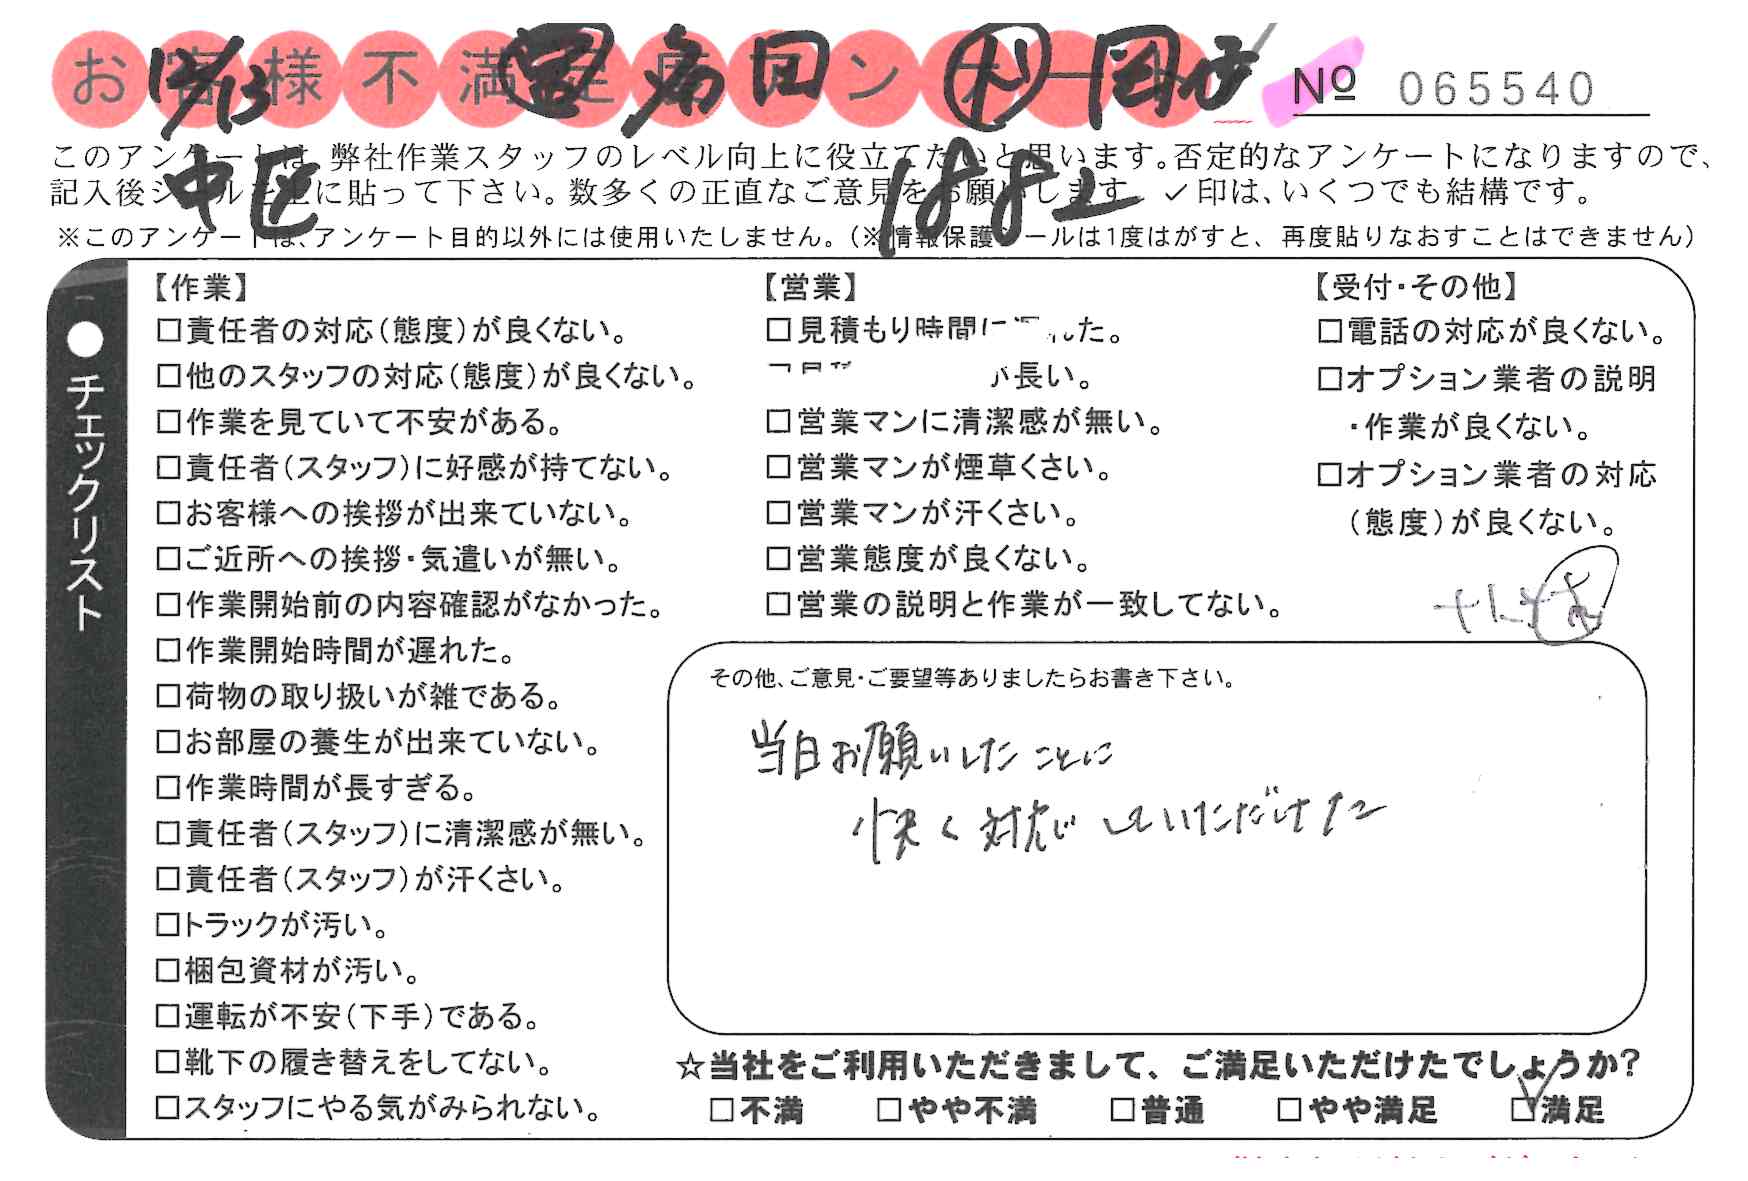 お客様不満足度アンケート
12/13
No 065540
このアンケートは、弊社作業スタッフのレベル向上に役立てたいと思います。否定的なアンケートになりますので、
記入後シールを上に貼って下さい。数多くの正直なご意見をお願いします。✓印は、いくつでも結構です。
中区
1882
※このアンケートは、アンケート目的以外には使用いたしません。(※情報保護シールは1度はがすと、再度貼りなおすことはできません)
●チェックリスト
【作業】
□責任者の対応(態度)が良くない。
□他のスタッフの対応(態度)が良くない。
□作業を見ていて不安がある。
□責任者(スタッフ)に好感が持てない。
□お客様への挨拶が出来ていない。
□ご近所への挨拶・気遣いが無い。
□作業開始前の内容確認がなかった。
□作業開始時間が遅れた。
□荷物の取り扱いが雑である。
□お部屋の養生が出来ていない。
□作業時間が長すぎる。
□責任者(スタッフ)に清潔感が無い。
□責任者(スタッフ)が汗くさい。
□トラックが汚い。
□梱包資材が汚い。
□運転が不安(下手)である。
□靴下の履き替えをしてない。
□スタッフにやる気がみられない。
【営業】
□見積もり時間に遅れた。
が長い。
□営業マンに清潔感が無い。
□営業マンが煙草くさい。
□営業マンが汗くさい。
□営業態度が良くない。
□営業の説明と作業が一致してない。
【受付・その他】
□電話の対応が良くない。
□オプション業者の説明
・作業が良くない。
□オプション業者の対応
(態度)が良くない。
その他、ご意見・ご要望等ありましたらお書き下さい。
当日お願いしたことに
快く対応していただけた
☆当社をご利用いただきまして、ご満足いただけたでしょうか?
□不満 □やや不満 □普通 □やや満足 ☑満足